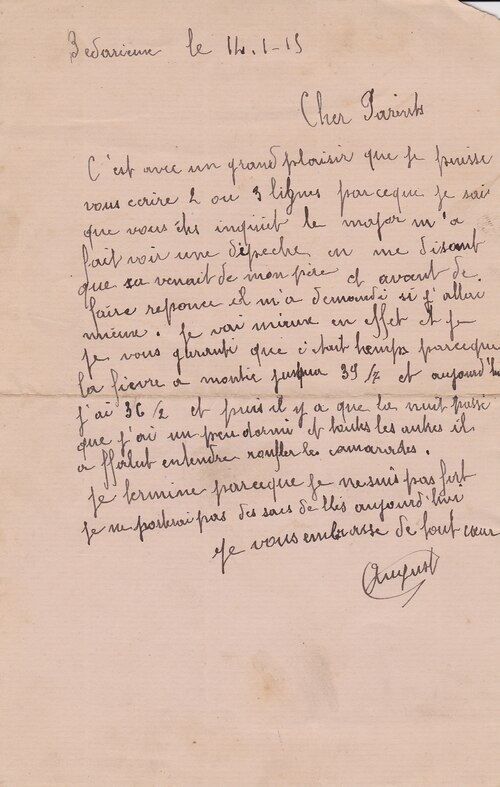 Bedarieux le 14.1-15
Cher Parents
C'est avec un grand plaisir que je puisse
vous ecrire 2 ou 3 lignes parceque je sai
que vous êtes inquiet le major m'a
fait voir une dépeche en me disant
que sa venait de mon père et avant de
faire reponce il m'a demandé si j'allai
mieux. Je vai mieux en effet et je
je vous garanti que c'etait temps parceque
la fievre a montée jusqua 39/7 et aujourd'hui
j'ai 36/2 et puis il y a que la nuit passé
que j'ai un peu dormi et toutes les autres il
a fallut entendre ronfler les camarades.
Je termine parceque je ne suis pas fort
je ne porterai pas des sacs de blés aujourd'hui
Je vous embrasse de tout cœur
August